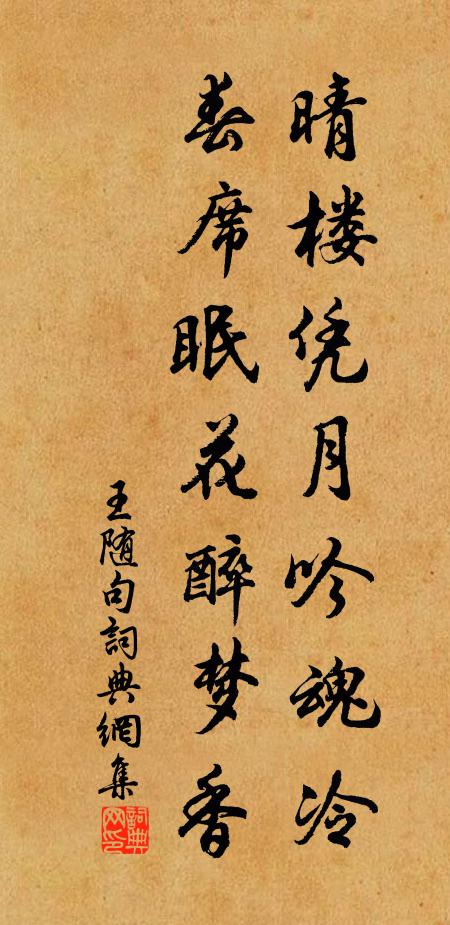 晴楼凭月吟魂冷
春席眠花醉梦香
王随句詞典網集
詞典
网印